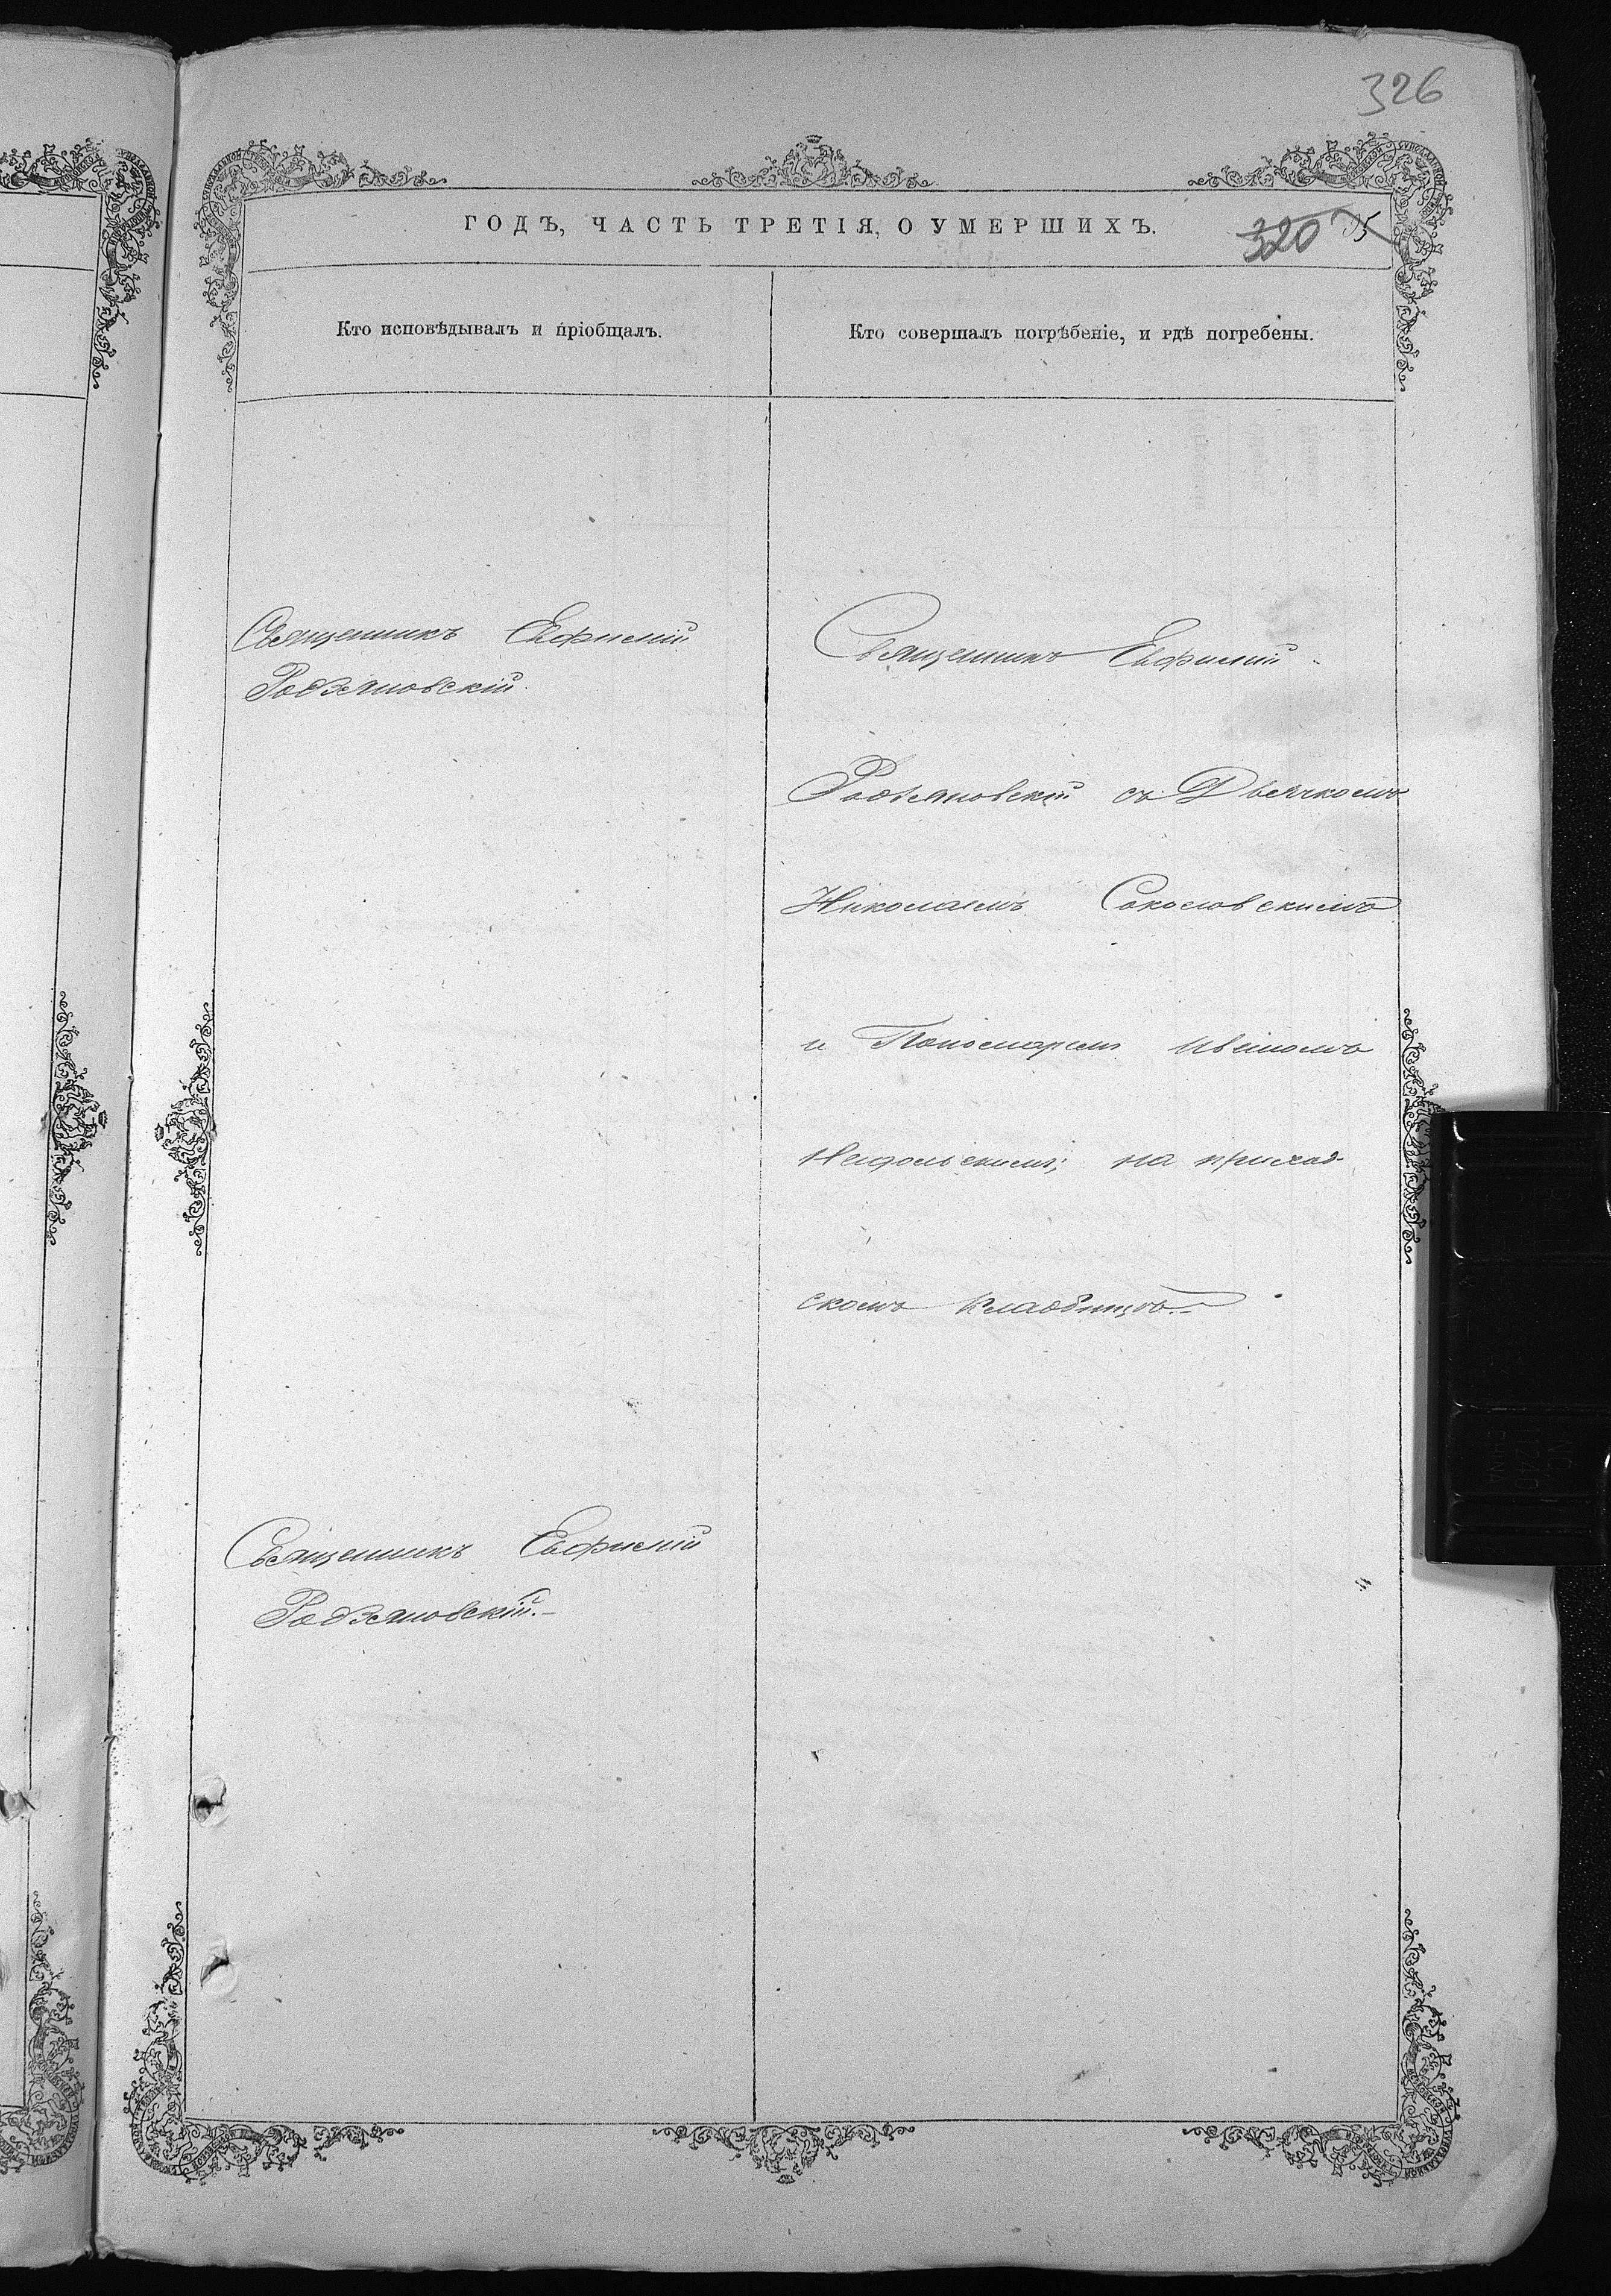 326
ГОДЪ, ЧАСТЬ ТРЕТІЯ, О УМЕРШИХЪ.
320
Кто исповѣдывалъ и пріобщалъ.
Кто совершалъ погрѣбеніе, и гдѣ погребены.
Священникъ Евфимій
Родзяновскій.
Священникъ Евфимій
Родзяновскій съ Дьячкомъ
Николаемъ Соколовскимъ
и Пономаремъ
на приход-
скомъ кладбищѣ.-
Священникъ Евфимій
Родзяновскій.-